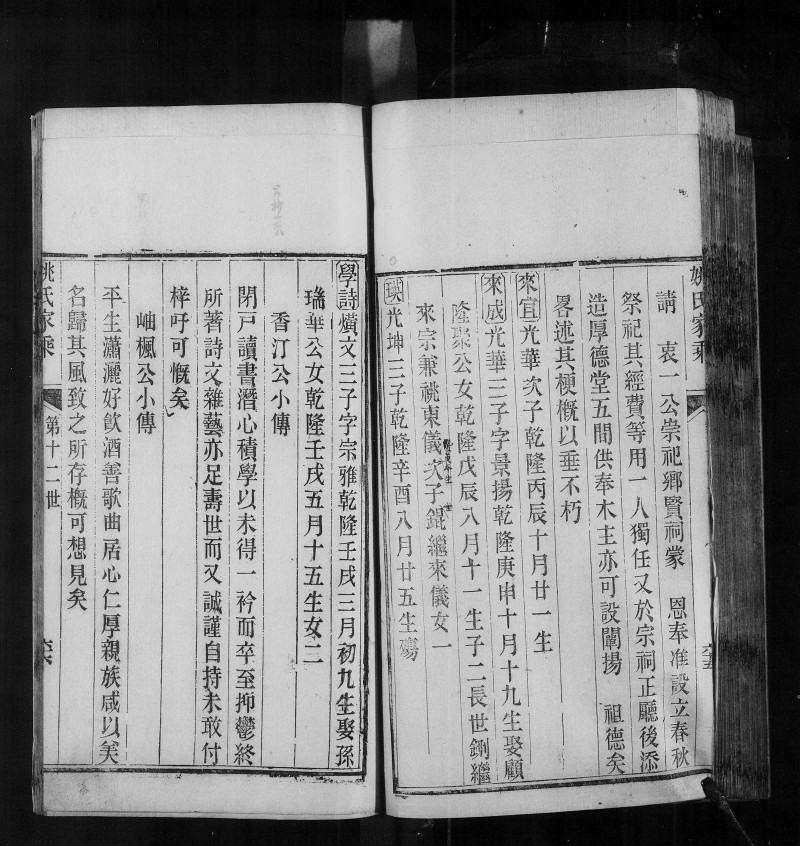 姚氏家乘
請 衷一公崇祀鄉賢祠蒙 恩奉准設立春秋
祭祀其經費等用一人獨任又於宗祠正廳後添
造厚德堂五間供奉木主亦可設闡揚 祖德矣
畧述其梗槪以垂不朽
來宜光華次子乾隆丙辰十月廿一生
來成光華三子字景揚乾隆庚申十月十九生娶顧
隆聚公女乾隆戊辰八月十一生子二長世鉶繼
來宗兼祧東儀次子錕繼來儀女一
瑛光坤三子乾隆辛酉八月廿五生殤
六五
學詩爌文三子字宗雅乾隆壬戌三月初九生娶孫
瑞華公女乾隆壬戌五月十五生女二
香汀公小傳
閉戸讀書潛心積學以未得一衿而卒至抑鬱終
所著詩文雜藝亦足壽世而又誠謹自持未敢付
梓吁可慨矣
岫楓公小傳
平生瀟灑好飲酒善歌曲居心仁厚親族咸以美
名歸其風致之所存槪可想見矣
姚氏家乘 第十二世 六六